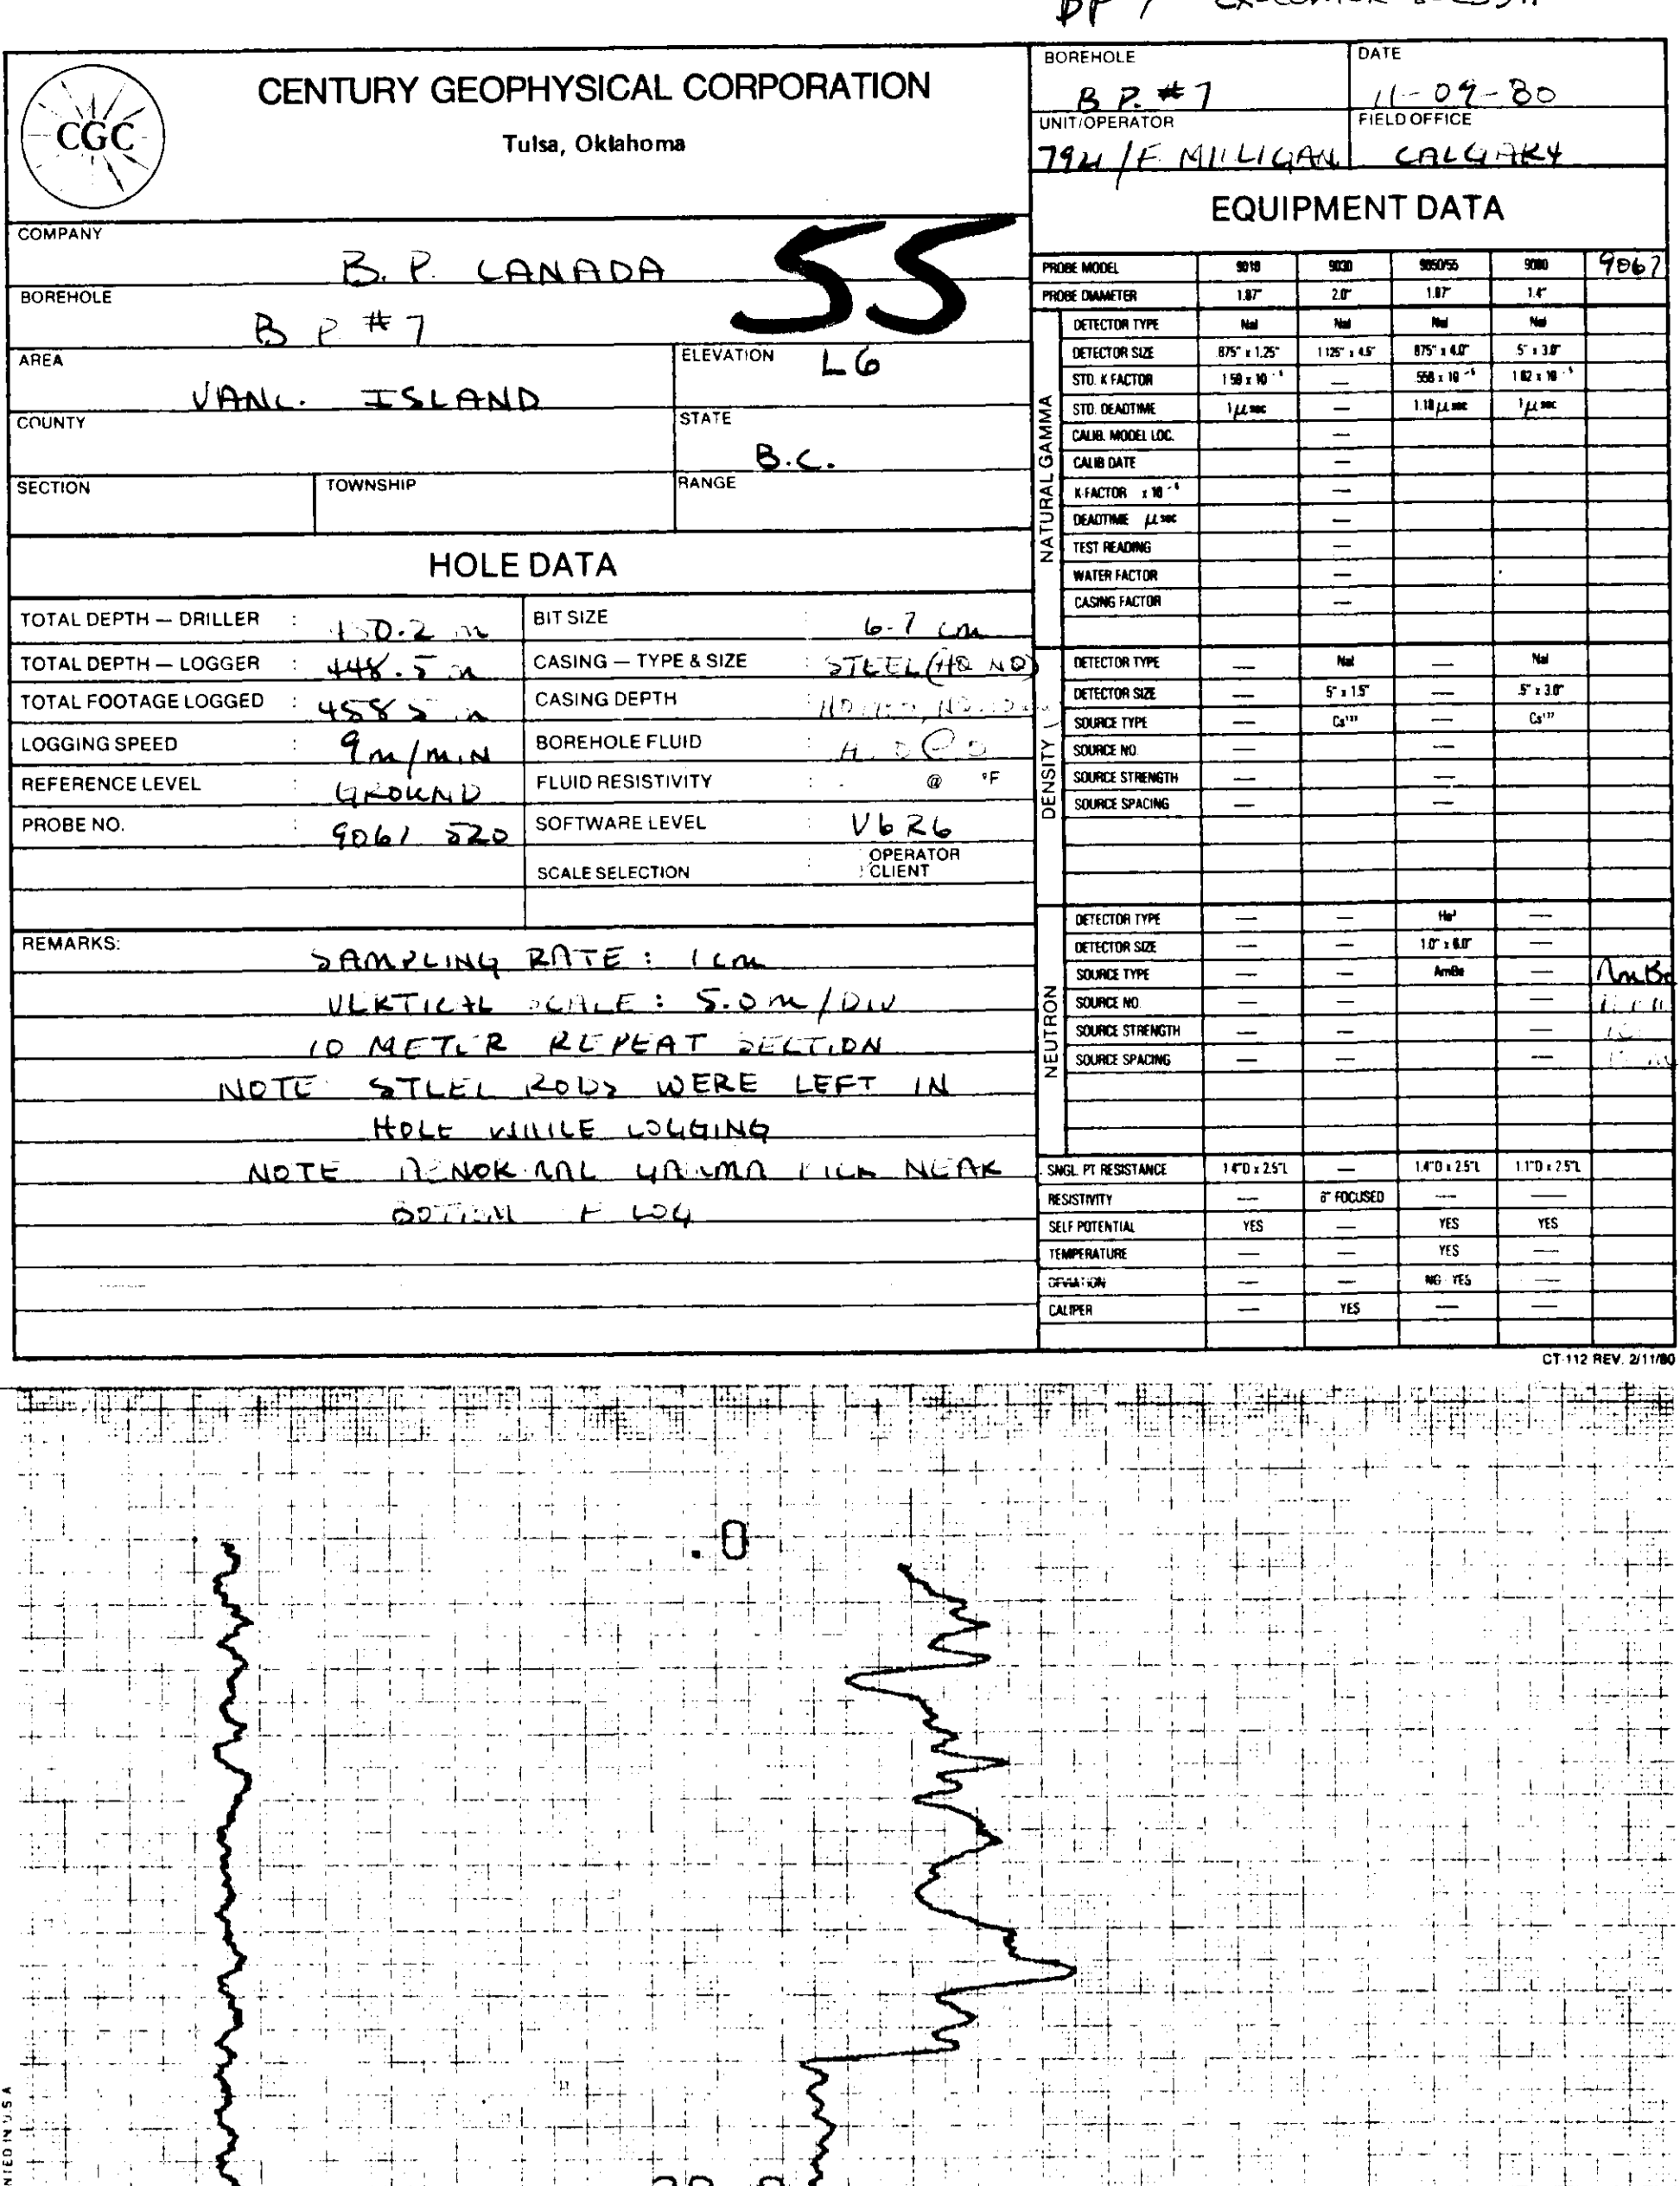 CGC
CENTURY GEOPHYSICAL CORPORATION
Tulsa, Oklahoma
BOREHOLE
B P. #7
DATE
11-09-80
UNIT/OPERATOR
FIELD OFFICE
CALGARY
COMPANY
B. P. CANADA
55
BOREHOLE
B P #7
AREA
VANC. ISLAND
ELEVATION
L6
COUNTY
STATE
B.C.
SECTION
TOWNSHIP
RANGE
HOLE DATA
TOTAL DEPTH — DRILLER :
TOTAL DEPTH — LOGGER : 448.5 m
TOTAL FOOTAGE LOGGED : 458 5 m
LOGGING SPEED : 9m/MIN
REFERENCE LEVEL : GROUND
PROBE NO. :
BIT SIZE : 6-7 cm
CASING — TYPE & SIZE : STEEL (HQ NQ)
CASING DEPTH
BOREHOLE FLUID :
FLUID RESISTIVITY : @ °F
SOFTWARE LEVEL : V6R6
SCALE SELECTION : OPERATOR
CLIENT
REMARKS:
SAMPLING RATE : 1 cm
VERTICAL SCALE : 5.0 m / DIV
10 METER REPEAT SECTION
NOTE STEEL RODS WERE LEFT IN
HOLE WHILE LOGGING
NOTE GAMMA NEAR
BOTTOM LOG
EQUIPMENT DATA
PROBE MODEL 9010 9030 9050/55 9080
PROBE DIAMETER 1.87" 2.0" 1.87" 1.4"
NATURAL GAMMA
DETECTOR TYPE NaI NaI NaI NaI
DETECTOR SIZE .875" x 1.25" 1.125" x 4.5" .875" x 4.0" .5" x 3.0"
STD. K FACTOR —
STD. DEADTIME 1 µ sec — 1.18 µ sec 1 µ sec
CALIB. MODEL LOC. —
CALIB DATE —
K-FACTOR —
DEADTIME µ sec —
TEST READING —
WATER FACTOR —
CASING FACTOR —
DENSITY
DETECTOR TYPE — NaI — NaI
DETECTOR SIZE — .5" x 1.5" — .5" x 3.0"
SOURCE TYPE — Cs¹³⁷ — Cs¹³⁷
SOURCE NO. — —
SOURCE STRENGTH — —
SOURCE SPACING — —
NEUTRON
DETECTOR TYPE — — He³ —
DETECTOR SIZE — — 1.0" x 6.0" —
SOURCE TYPE — — AmBe — AmBe
SOURCE NO. — — —
SOURCE STRENGTH — — —
SOURCE SPACING — — —
SNGL. PT RESISTANCE 1.4"D x 2.5"L — 1.4"D x 2.5"L 1.1"D x 2.5"L
RESISTIVITY — 6" FOCUSED — —
SELF POTENTIAL YES — YES YES
TEMPERATURE — — YES —
DEVIATION — — NG - YES —
CALIPER — YES — —
CT-112 REV. 2/11/80
.0